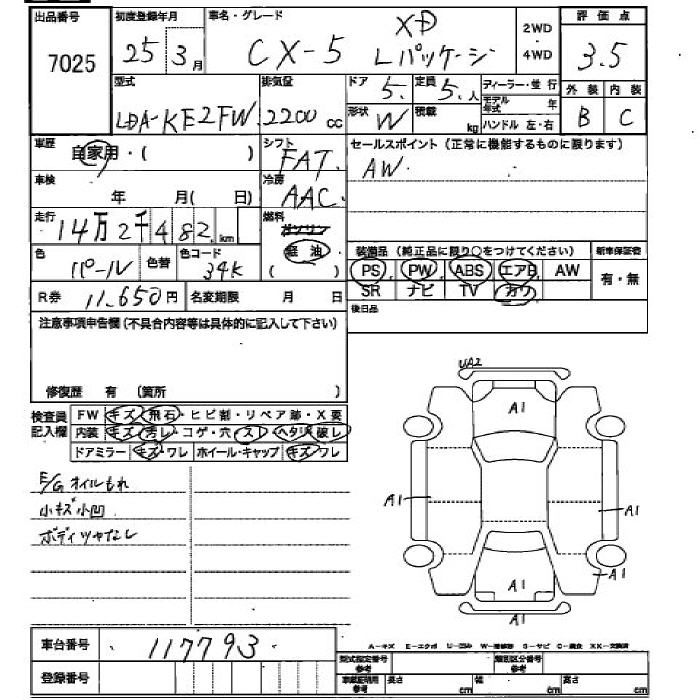 出品番号 初度登録年月 車名・グレード 2WD 4WD 評価点
7025 25 3月 CX-5 XD Lパッケージ 3.5
型式 排気量 ドア 5. 定員 5.人 ディーラー・並行 外装 内装
LDA-KE2FW 2200cc 形状 W 積載 kg モデル年式 年 B C
ハンドル 左・右
車歴 自家用・( ) シフト FAT. セールスポイント(正常に機能するものに限ります)
車検 年 月( 日) 冷房 AAC. AW.
走行 14万2千482km 燃料 ガソリン 軽油 ( )
色 パール 色替 色コード 34K
装備品(純正品に限り○をつけてください) 新車保証書
PS PW ABS エアB AW 有・無
SR ナビ TV カワ
R券 11,650円 名変期限 月 日 後日品
注意事項申告欄(不具合内容等は具体的に記入して下さい)
修復歴 有 (箇所 )
検査員記入欄 FW キズ・飛石・ヒビ割・リペア跡・X要
内装 キズ・汚レ・コゲ・穴・スレ・ヘタリ・破レ
ドアミラー キズ・ワレ ホイール・キャップ キズ・ワレ
E/Gオイルもれ
小キズ小凹
ボディツヤなし
UA2
A1
A1
A1
A1
A1
A1
A-キズ E-エクボ U-凹み W-補修跡 S-サビ C-腐食 XX-交換済
車台番号 117793
登録番号
型式指定番号 参考 類別区分番号 参考
車庫証明用 参考 長さ cm 幅 cm 高さ cm